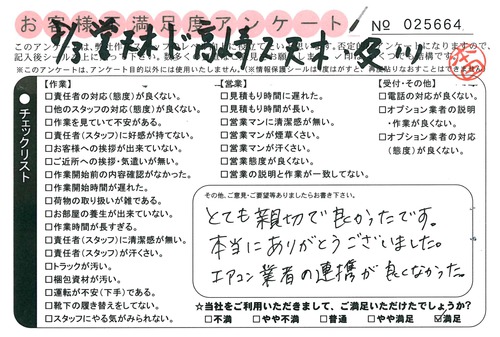 お客様不満足度アンケート
№ 025664
※このアンケートは、アンケート目的以外には使用いたしません。
チェックリスト
【作業】
□責任者の対応(態度)が良くない。
□他のスタッフの対応(態度)が良くない。
□作業を見ていて不安がある。
□責任者(スタッフ)に好感が持てない。
□お客様への挨拶が出来ていない。
□ご近所への挨拶・気遣いが無い。
□作業開始前の内容確認がなかった。
□作業開始時間が遅れた。
□荷物の取り扱いが雑である。
□お部屋の養生が出来ていない。
□作業時間が長すぎる。
□責任者(スタッフ)に清潔感が無い。
□責任者(スタッフ)が汗くさい。
□トラックが汚い。
□梱包資材が汚い。
□運転が不安(下手)である。
□靴下の履き替えをしてない。
□スタッフにやる気がみられない。
【営業】
□見積もり時間に遅れた。
□見積もり時間が長い。
□営業マンに清潔感が無い。
□営業マンが煙草くさい。
□営業マンが汗くさい。
□営業態度が良くない。
□営業の説明と作業が一致してない。
【受付・その他】
□電話の対応が良くない。
□オプション業者の説明
・作業が良くない。
□オプション業者の対応
(態度)が良くない。
その他、ご意見・ご要望等ありましたらお書き下さい。
とても親切で良かったです。
本当にありがとうございました。
エアコン業者の連携が良くなかった。
☆当社をご利用いただきまして、ご満足いただけたでしょうか?
□不満 □やや不満 □普通 □やや満足 ☑満足